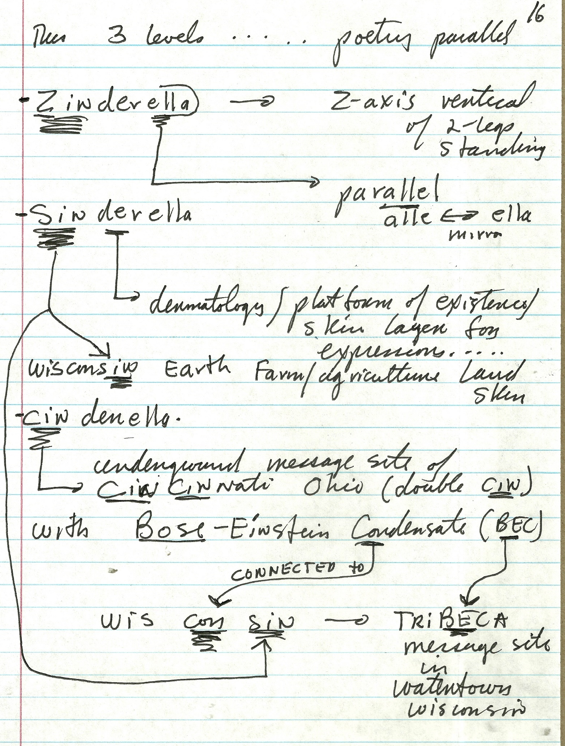 16
Thus 3 levels ...... poetry parallel
- Zinderella → Z-axis vertical
of 2-legs
standing
parallel
alle ↔ ella
mirror
- Sin derella
dermatology / platform of existence /
skin layer for
expressions.....
Wisconsin Earth Farm/agriculture Land
Skin
- Cin derella.
underground message site of
Cin CinNati Ohio (double CIN)
with Bose-Einstein Condensate (BEC)
CONNECTED to
Wis con sin → TRiBECA
message site
in
Watertown
Wisconsin